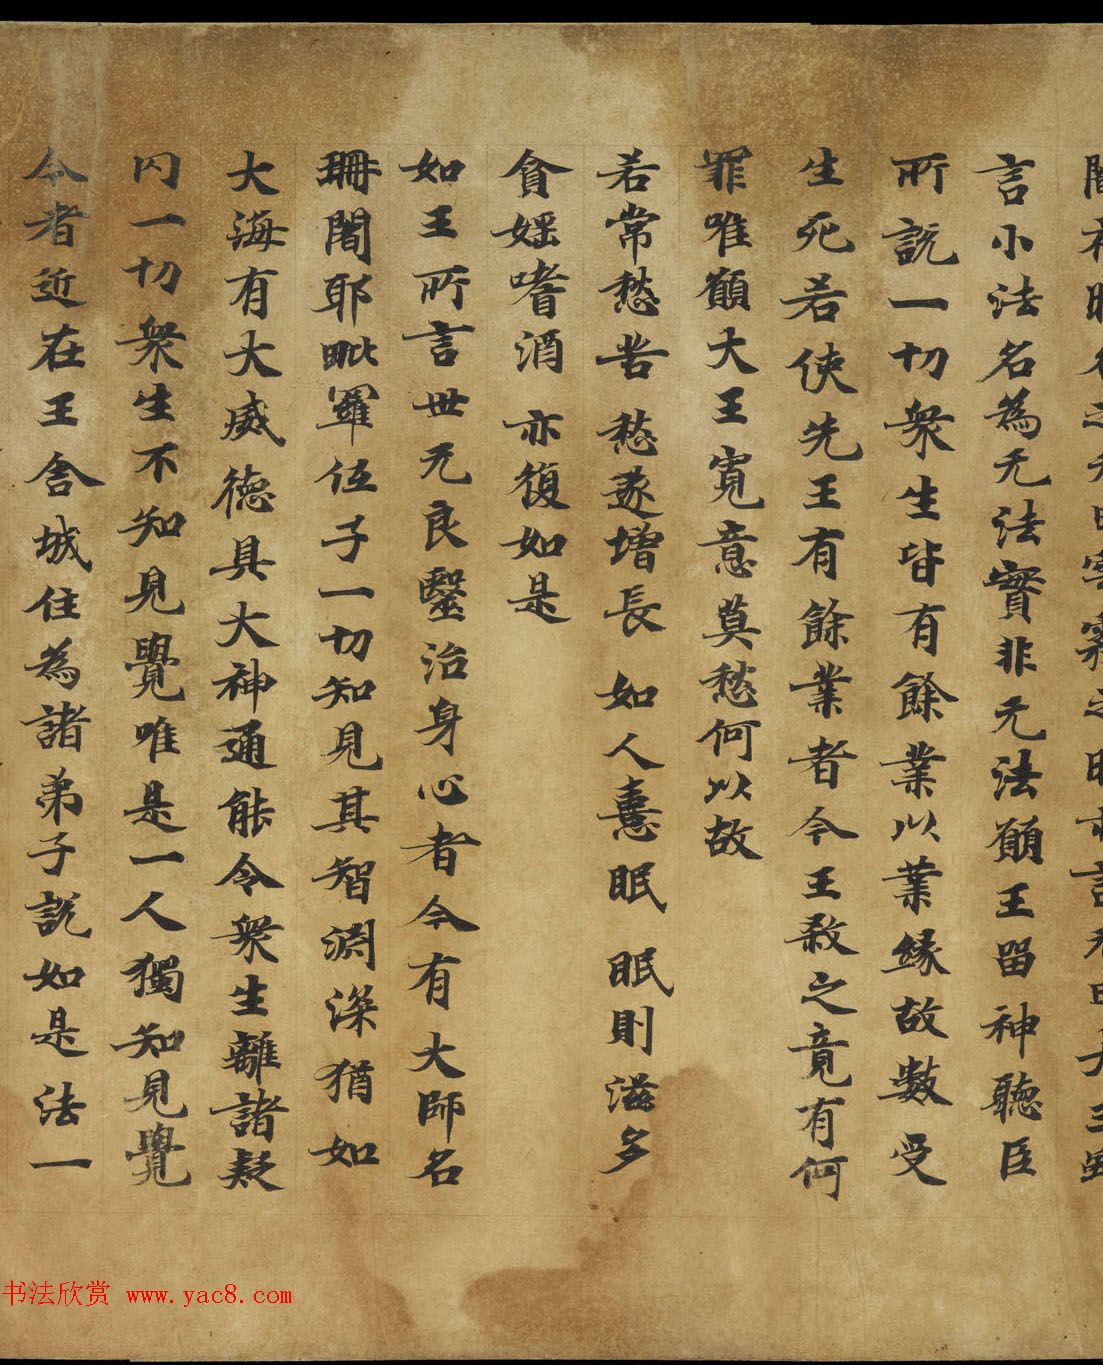 言小法名為无法實非无法願王留神聽臣
所説一切衆生皆有餘業以業縁故數受
生死若使先王有餘業者今王殺之竟有何
罪唯願大王寬意莫愁何以故
若常愁苦 愁遂增長 如人憙眠 眠則滋多
貪婬嗜酒 亦復如是
如王所言世无良醫治身心者今有大師名
珊闍耶毗羅伍子一切知見其智淵深猶如
大海有大威德具大神通能令衆生離諸疑
网一切衆生不知見覺唯是一人獨知見覺
今者近在王舍城住為諸弟子説如是法一
书法欣赏 www.yac8.com